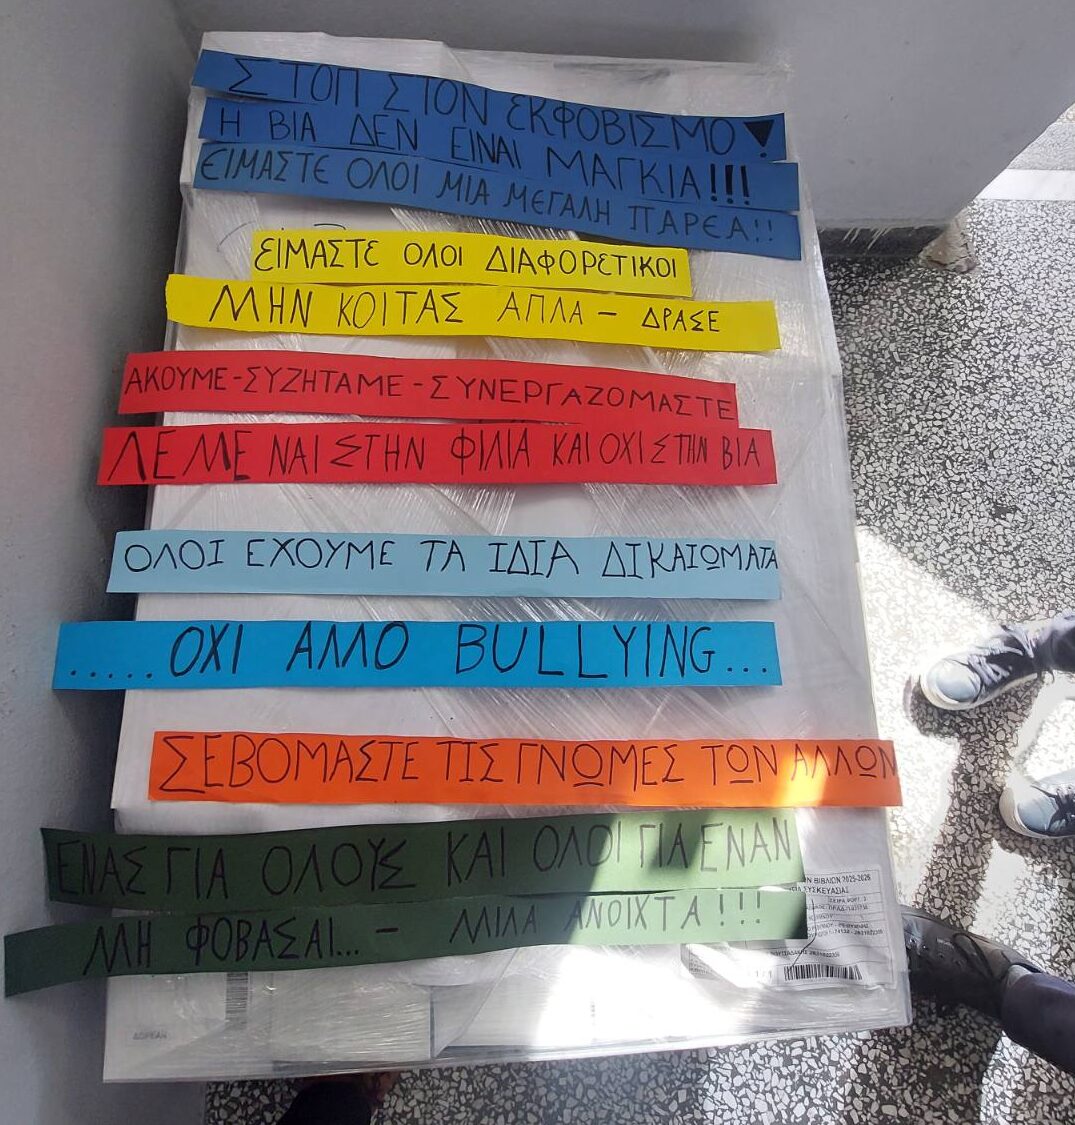 ΣΤΟΠ ΣΤΟΝ ΕΚΦΟΒΙΣΜΟ!
Η ΒΙΑ ΔΕΝ ΕΙΝΑΙ ΜΑΓΚΙΑ!!!
ΕΙΜΑΣΤΕ ΟΛΟΙ ΜΙΑ ΜΕΓΑΛΗ ΠΑΡΕΑ!!
ΕΙΜΑΣΤΕ ΟΛΟΙ ΔΙΑΦΟΡΕΤΙΚΟΙ
ΜΗΝ ΚΟΙΤΑΣ ΑΠΛΑ - ΔΡΑΣΕ
ΑΚΟΥΜΕ-ΣΥΖΗΤΑΜΕ-ΣΥΝΕΡΓΑΖΟΜΑΣΤΕ
ΛΕΜΕ ΝΑΙ ΣΤΗΝ ΦΙΛΙΑ ΚΑΙ ΟΧΙ ΣΤΗΝ ΒΙΑ
ΟΛΟΙ ΕΧΟΥΜΕ ΤΑ ΙΔΙΑ ΔΙΚΑΙΩΜΑΤΑ
.....ΟΧΙ ΑΛΛΟ BULLYING...
ΣΕΒΟΜΑΣΤΕ ΤΙΣ ΓΝΩΜΕΣ ΤΩΝ ΑΛΛΩΝ
ΕΝΑΣ ΓΙΑ ΟΛΟΥΣ ΚΑΙ ΟΛΟΙ ΓΙΑ ΕΝΑΝ
ΜΗ ΦΟΒΑΣΑΙ... - ΜΙΛΑ ΑΝΟΙΧΤΑ!!!
ΒΙΒΛΙΩΝ 2025-2026
ΣΥΣΚΕΥΑΣΙΑΣ
ΔΩΡΕΑΝ